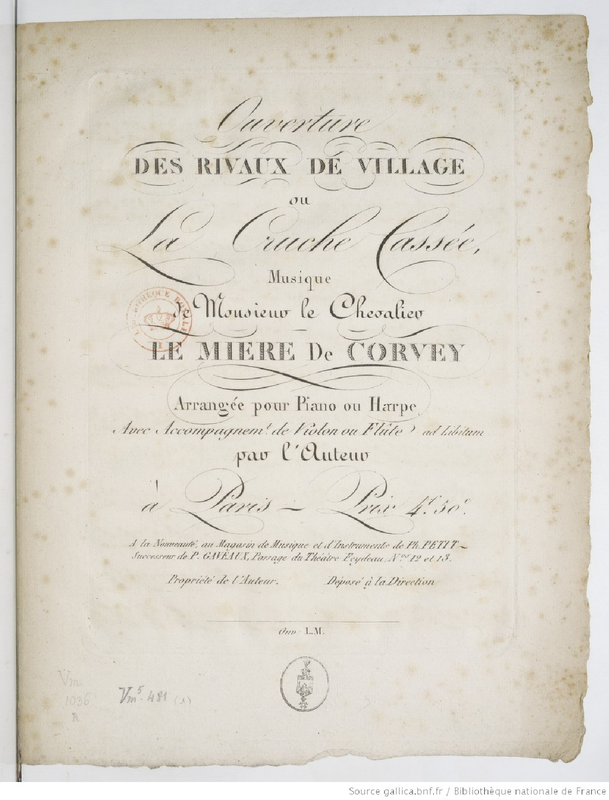 Ouverture
DES RIVAUX DE VILLAGE
ou
La Cruche Cassée,
Musique
de Monsieur le Chevalier
LE MIERE De CORVEY
Arrangée pour Piano ou Harpe
Avec Accompagnem.t de Violon ou Flûte ad Libitum
par l'Auteur
à Paris — Prix 4f. 50c.
A la Nouveauté, au Magasin de Musique et d'Instruments de Ph. PETIT
Successeur de P. GAVEAUX, Passage du Théâtre Feydeau, Nos. 12 et 13.
Propriété de l'Auteur. Déposé à la Direction
Ouv: L.M.
Vm. 1036 B
Vm5. 481 (1)
Source gallica.bnf.fr / Bibliothèque nationale de France